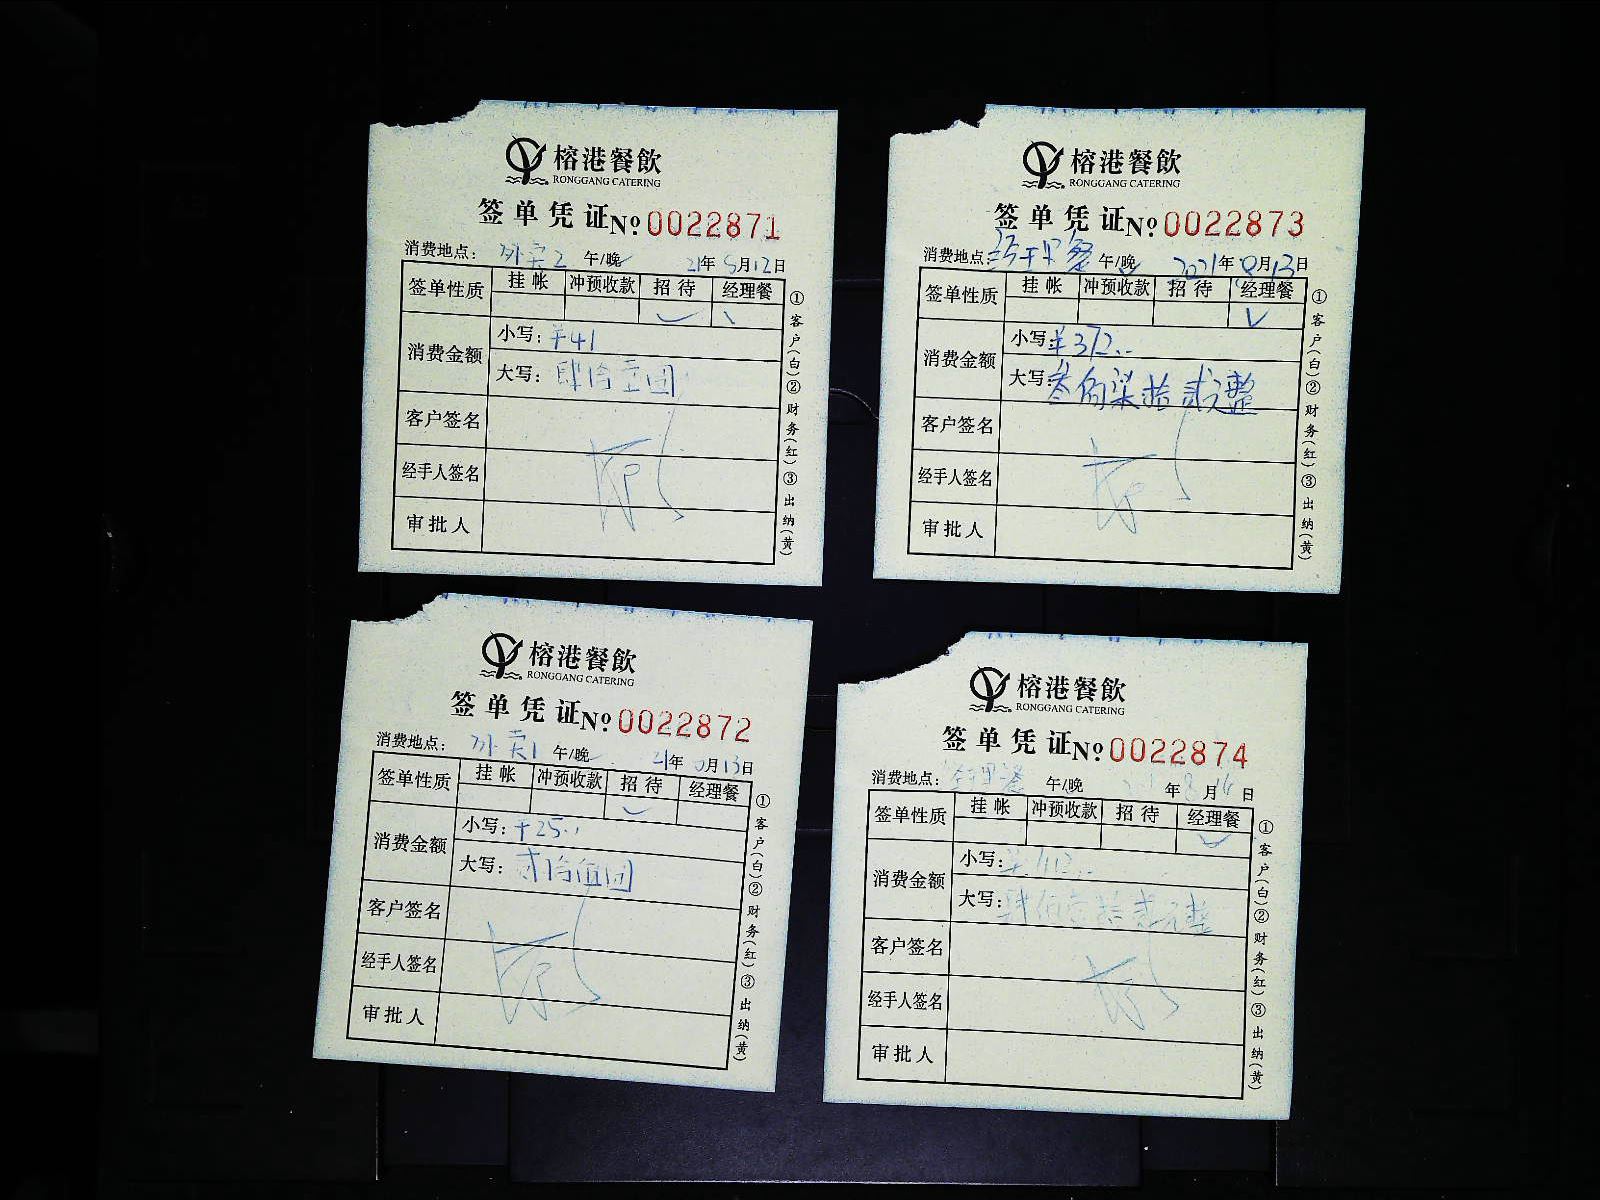 榕港餐飲
RONGGANG CATERING
签单凭证 No 0022871
消费地点: 外卖2 午/晚 21年 月12日
签单性质 挂帐 冲预收款 招待 经理餐
消费金额
小写: ¥41
大写: 肆拾壹圆
客户签名
经手人签名
审批人
①客户(白)②财务(红)③出纳(黄)
榕港餐飲
RONGGANG CATERING
签单凭证 No 0022873
消费地点: 经理餐 午/晚 2021年8月13日
签单性质 挂帐 冲预收款 招待 经理餐
消费金额
小写: ¥372..
大写: 叁佰柒拾贰元整
客户签名
经手人签名
审批人
①客户(白)②财务(红)③出纳(黄)
榕港餐飲
RONGGANG CATERING
签单凭证 No 0022872
消费地点: 外卖1 午/晚 21年 月13日
签单性质 挂帐 冲预收款 招待 经理餐
消费金额
小写: ¥25..
大写: 贰拾伍圆
客户签名
经手人签名
审批人
①客户(白)②财务(红)③出纳(黄)
榕港餐飲
RONGGANG CATERING
签单凭证 No 0022874
消费地点: 经理餐 午/晚 年8月 日
签单性质 挂帐 冲预收款 招待 经理餐
消费金额
小写: ¥412..
大写: 肆佰壹拾贰元整
客户签名
经手人签名
审批人
①客户(白)②财务(红)③出纳(黄)